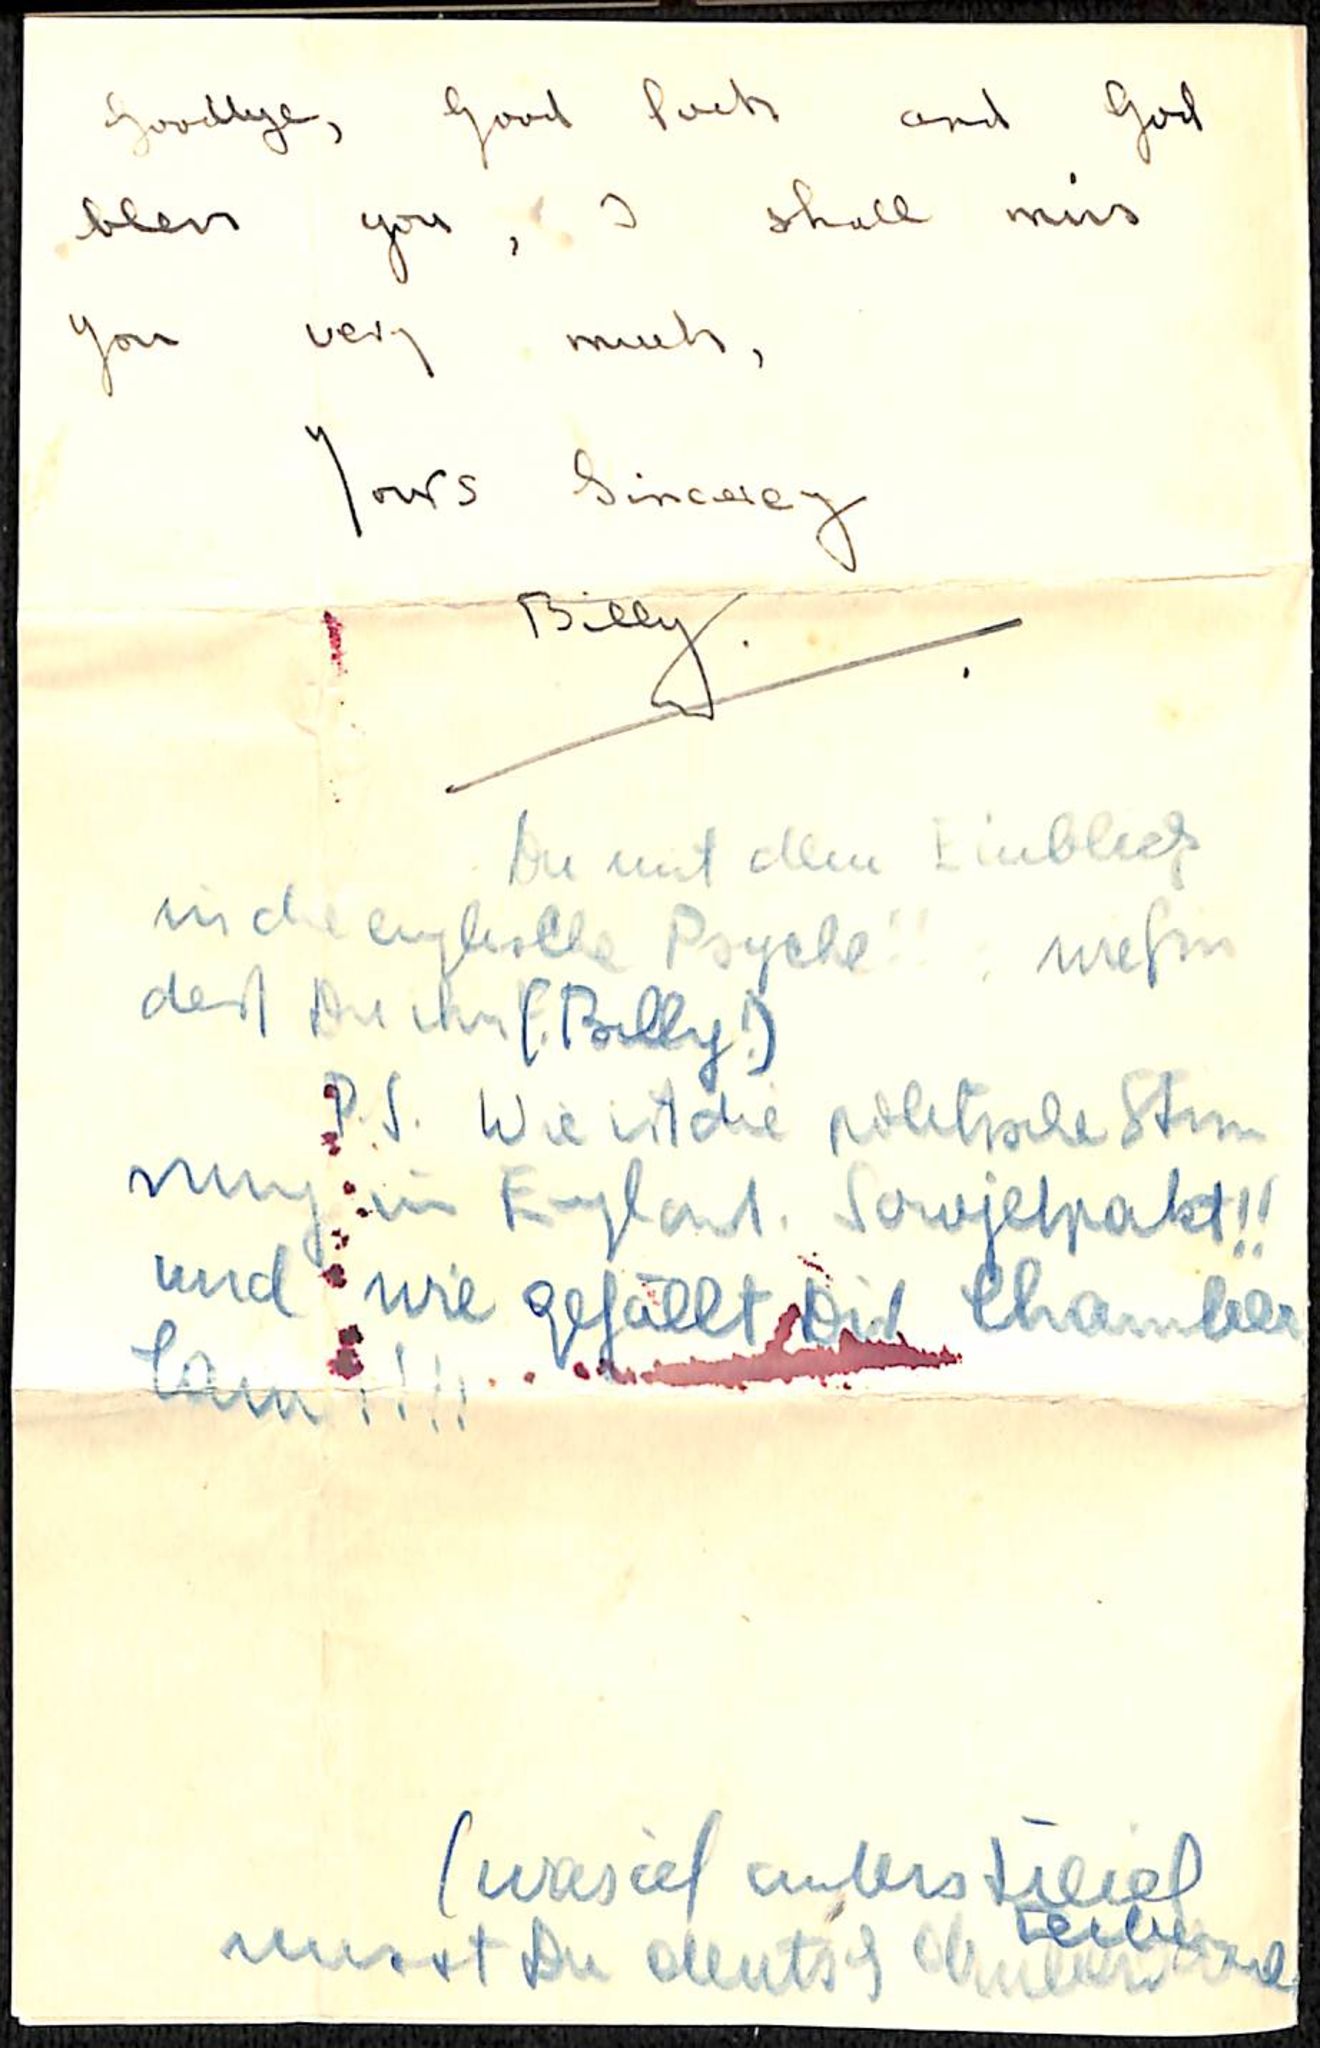 Goodbye, Good luck and God
bless you, I shall miss
you very much,
Yours Sincerey
Billy.
Du mit dem Einblick
in die englische Psyche!! : wie fin
dest Du ihn (Billy!)
P.S. Wie ist die politische Stim
mung in England. Sowjetpakt!!
und wie gefällt Dir Chamber
lain !!!!
(was ich unterstreich
musst Du deutsch